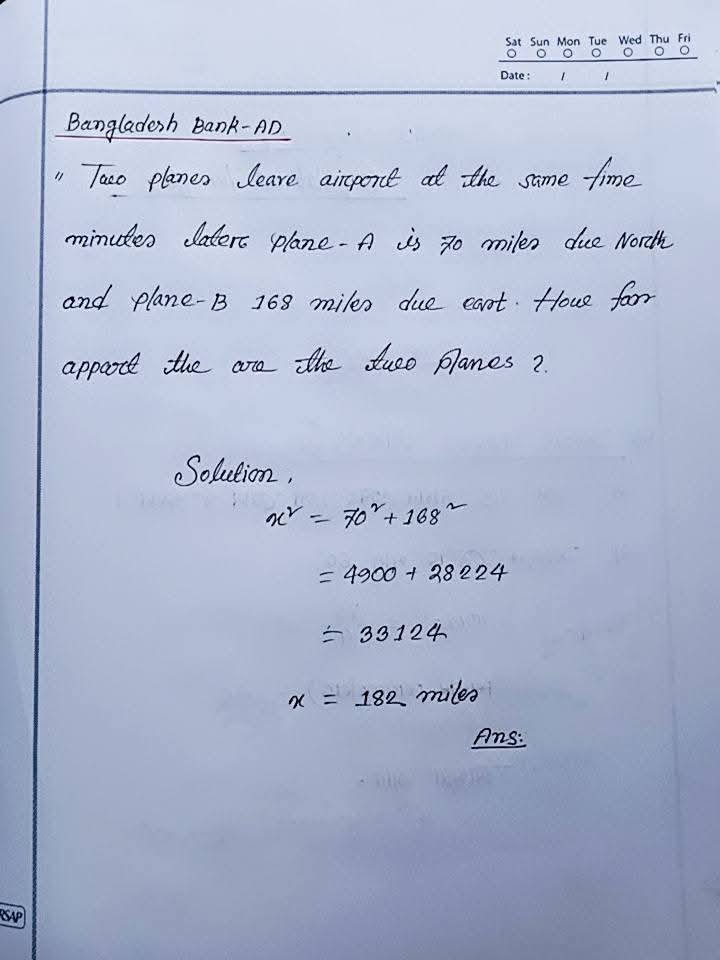 Sat Sun Mon Tue Wed Thu Fri
Date: / /
Bangladesh Bank-AD
" Two planes leave airport at the same time
minutes later plane-A is 70 miles due North
and plane-B 168 miles due east. How far
appart the are the two planes ?
Solution,
x² = 70² + 168²
= 4900 + 28224
= 33124
x = 182 miles
Ans:
RSAP